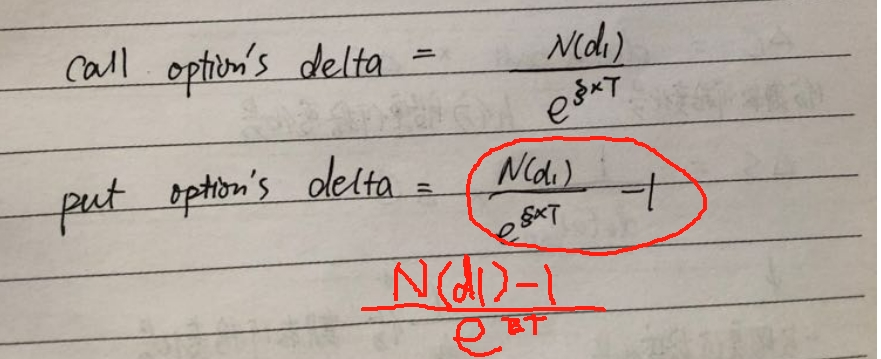 call option's delta = N(d1) / e^(δ×T)
put option's delta = N(d1) / e^(δ×T) - 1
N(d1)-1 / e^(δT)